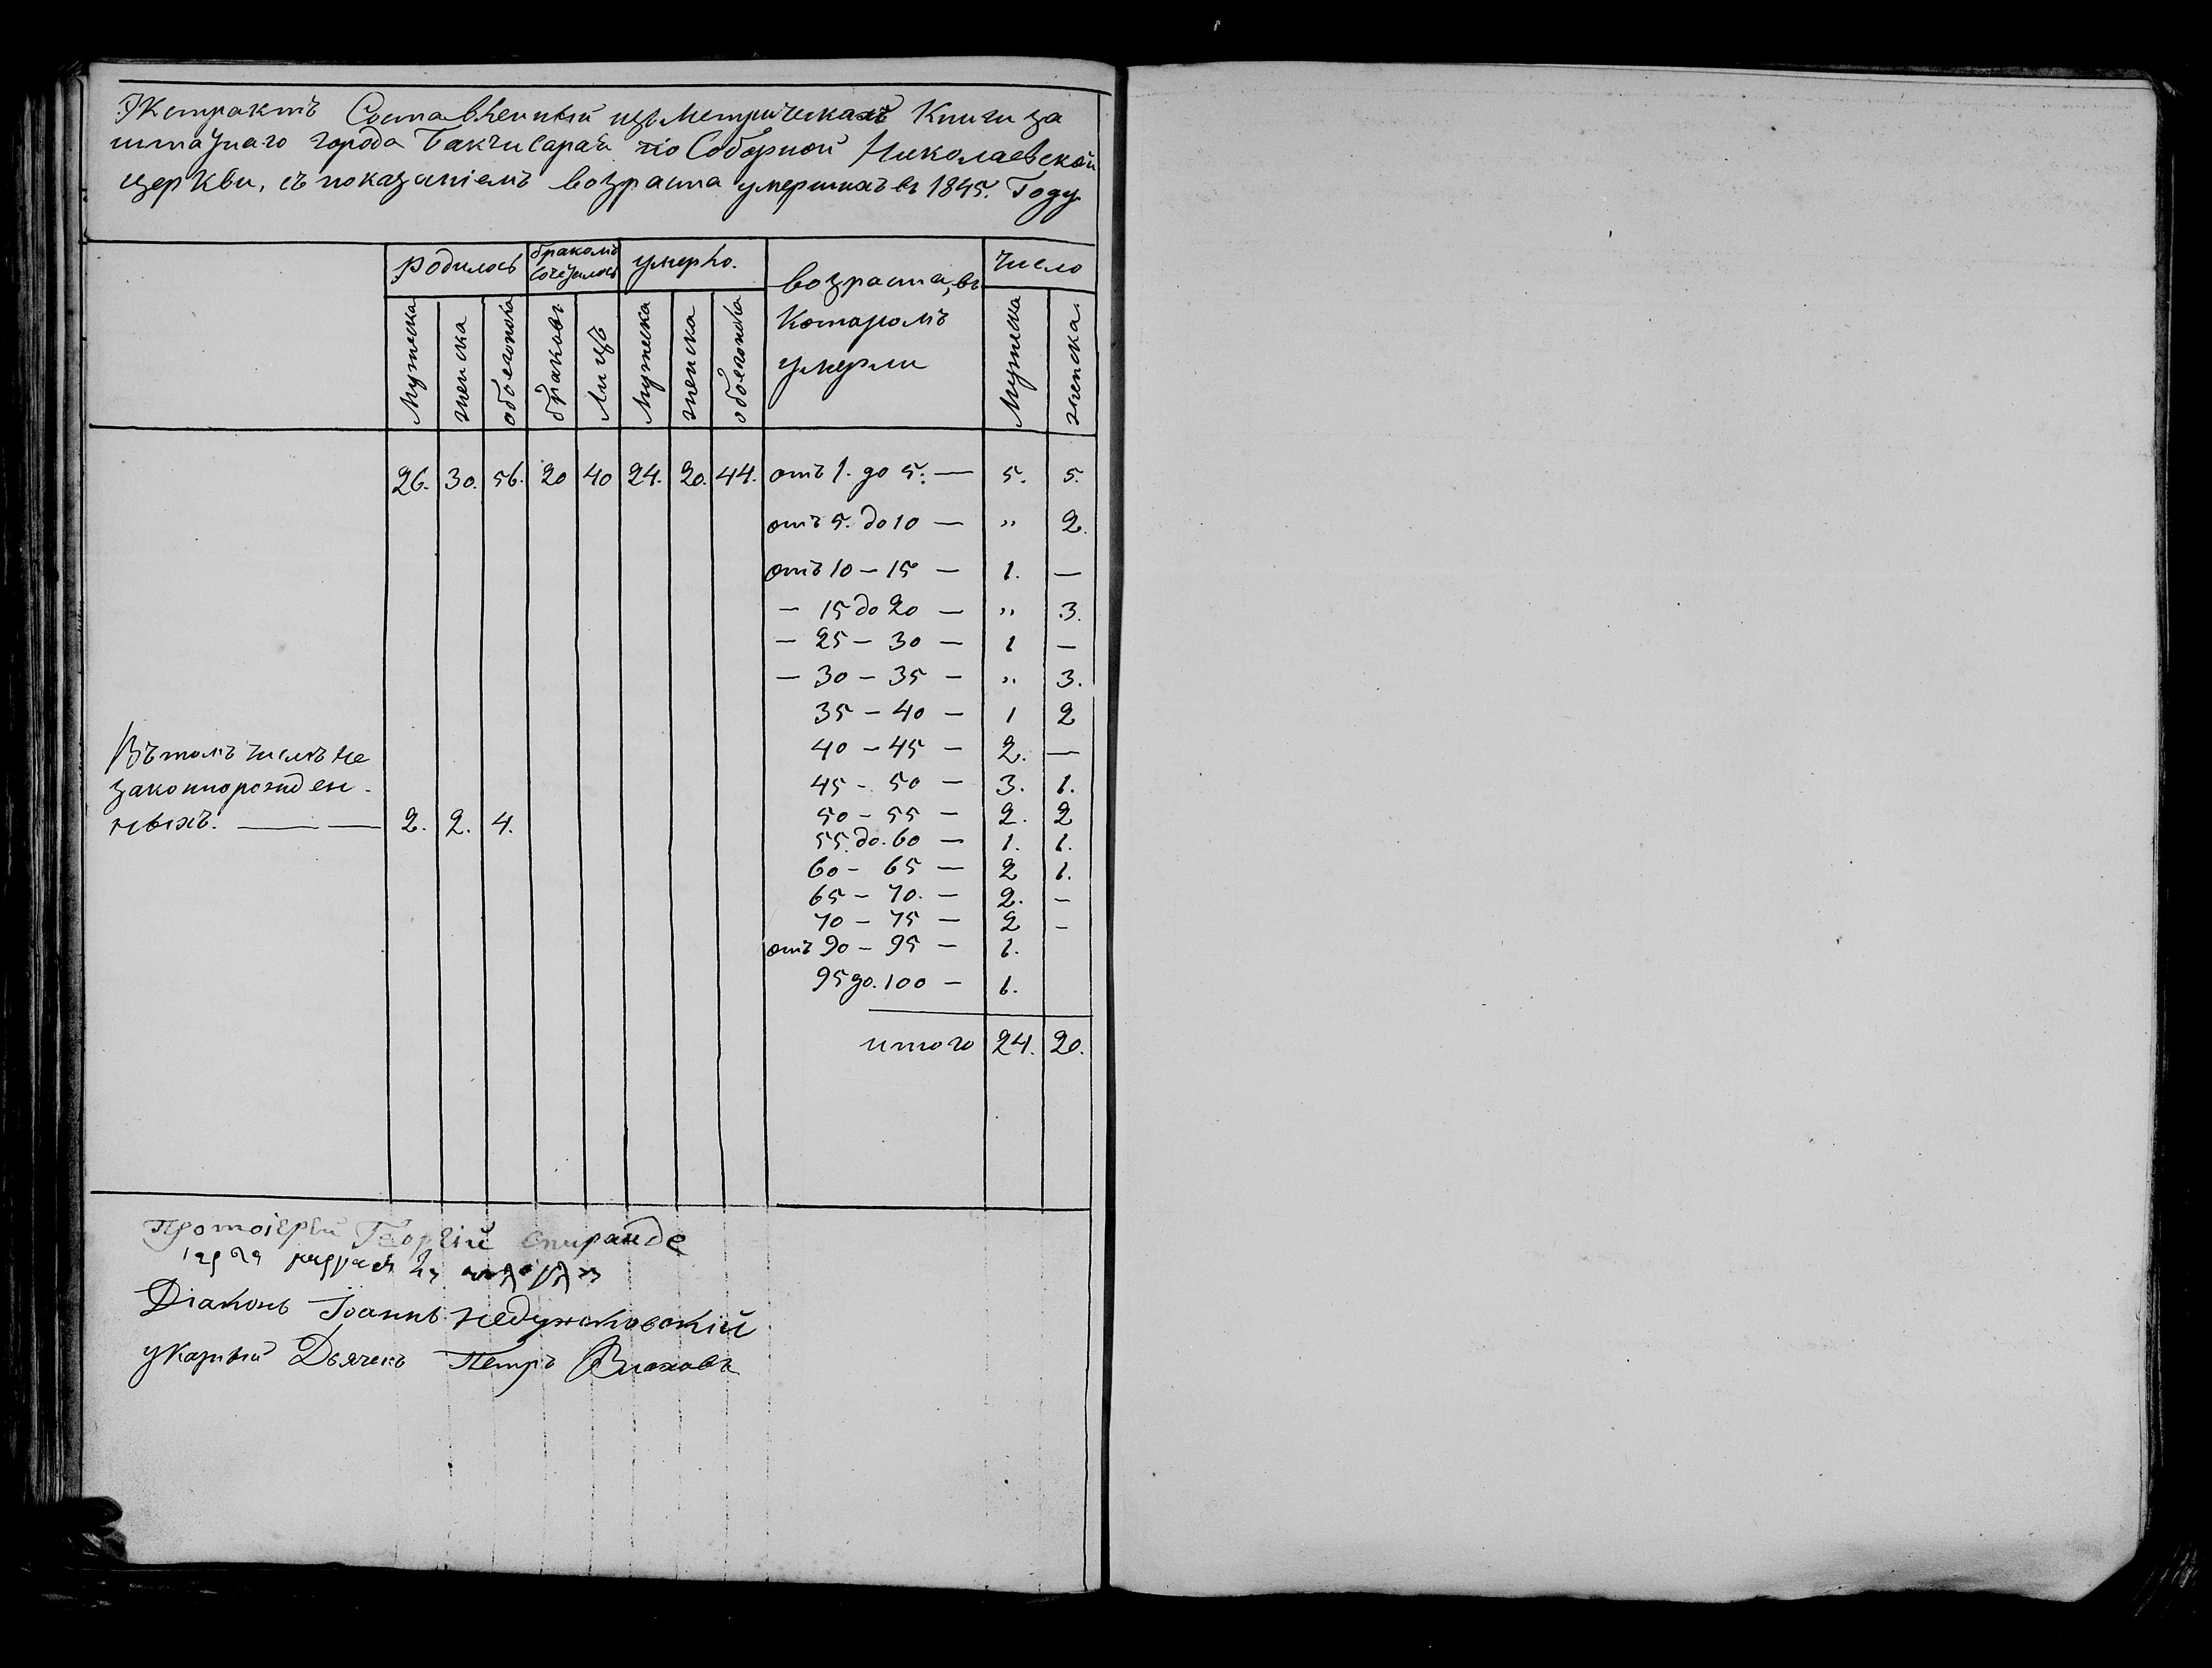 Экстрактъ Составленный изъ Метрическахъ Книги за
штатнаго города Бакчисарая по Соборной Николаевской
церкви, съ показаніемъ возраста умершихъ въ 1845. Году
родилось бракомъ Сочеталось умерло. возраста, въ Которомъ умерли Число
Мужеска женска обоегопола браковъ Лицъ Мужеска женска обоегопола Мужеска женска
26. 30. 56. 20 40 24. 20. 44. отъ 1. до 5. — 5. 5.
отъ 5. до 10 — " 2.
отъ 10 — 15 — 1. —
— 15 до 20 — " 3.
— 25 — 30 — 1 —
— 30 — 35 — " 3.
35 — 40 — 1 2
40 — 45 — 2. —
45 - 50 — 3. 1.
50 — 55 — 2. 2
55. до. 60 — 1. 1.
60 - 65 — 2 1.
65 — 70. — 2. —
70 — 75 — 2 —
отъ 90 — 95 — 1.
95 до. 100 — 1.
итого 24. 20.
Въ томъ числѣ не
законнорожден-
ныхъ. — — 2. 2. 4.
Протоіерей Георгій Спиранде
Діаконъ Іоаннъ Недужоковскій
указный Дьячекъ Петръ